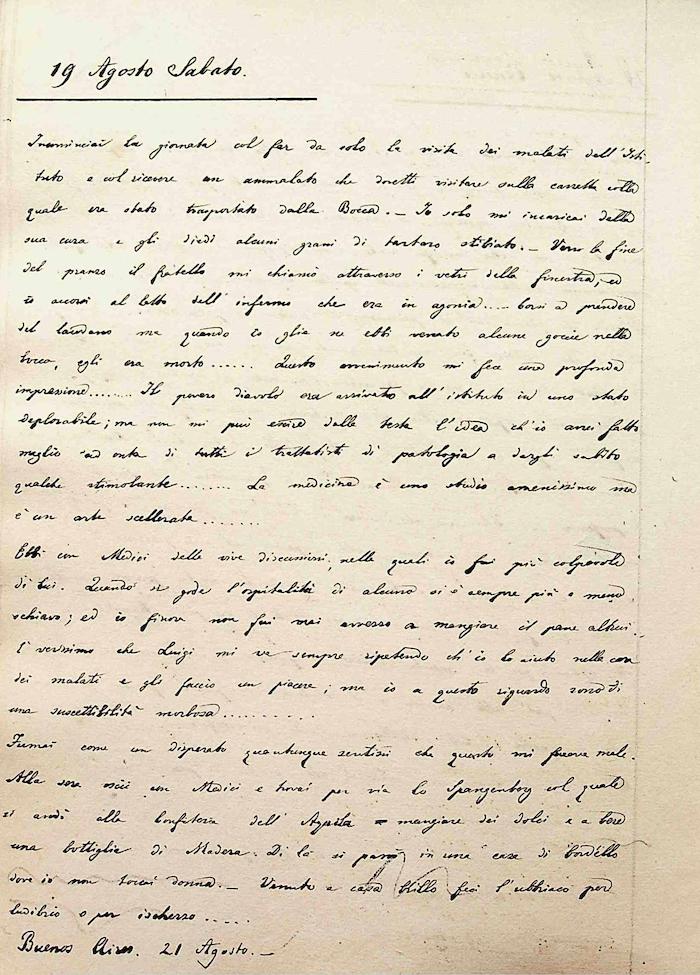 19 Agosto Sabato.
Incominciai la giornata col far da solo la visita dei malati dell'Isti-
tuto e col ricevere un ammalato che dovetti visitare sulla carretta colla
quale era stato trasportato dalla Bocca. — Io solo mi incaricai della
sua cura e gli diedi alcuni grani di tartaro stibiato. — Verso la fine
del pranzo il fratello mi chiamò attraverso i vetri della finestra, ed
io accorsi al letto dell'infermo che era in agonia.... corsi a prendere
del laudano ma quando io glie ne ebbi versato alcune goccie nella
bocca, egli era morto...... Questo avvenimento mi fece una profonda
impressione........ Il povero diavolo era arrivato all'istituto in uno stato
deplorabile; ma non mi può uscire dalla testa l'idea ch'io avrei fatto
meglio ad onta di tutti i trattatisti di patologia a dargli subito
qualche stimolante........ La medicina è uno studio amenissimo ma
è un'arte scellerata.......
Ebbi con Medici delle vive discussioni, nelle quali io fui più colpevole
di lui. Quando si gode l'ospitalità di alcuno si è sempre più o meno
schiavo; ed io finora non fui mai avvezzo a mangiare il pane altrui.
È verissimo che Luigi mi va sempre ripetendo ch'io lo aiuto nella cura
dei malati e gli faccio un piacere; ma io a questo riguardo sono di
una suscettibilità morbosa..........
Fumai come un disperato quantunque sentissi che questo mi faceva male.
Alla sera uscii con Medici e trovai per via lo Spangenborg col quale
si andò alla confetteria dell'Aguila a mangiare dei dolci e a bere
una bottiglia di Madera. Di là si passò in una casa di bordello
dove io non toccai donna. — Venuto a casa brillo feci l'ubbriaco per
ludibrio o per ischerzo.....
Buenos Aires. 21 Agosto. —